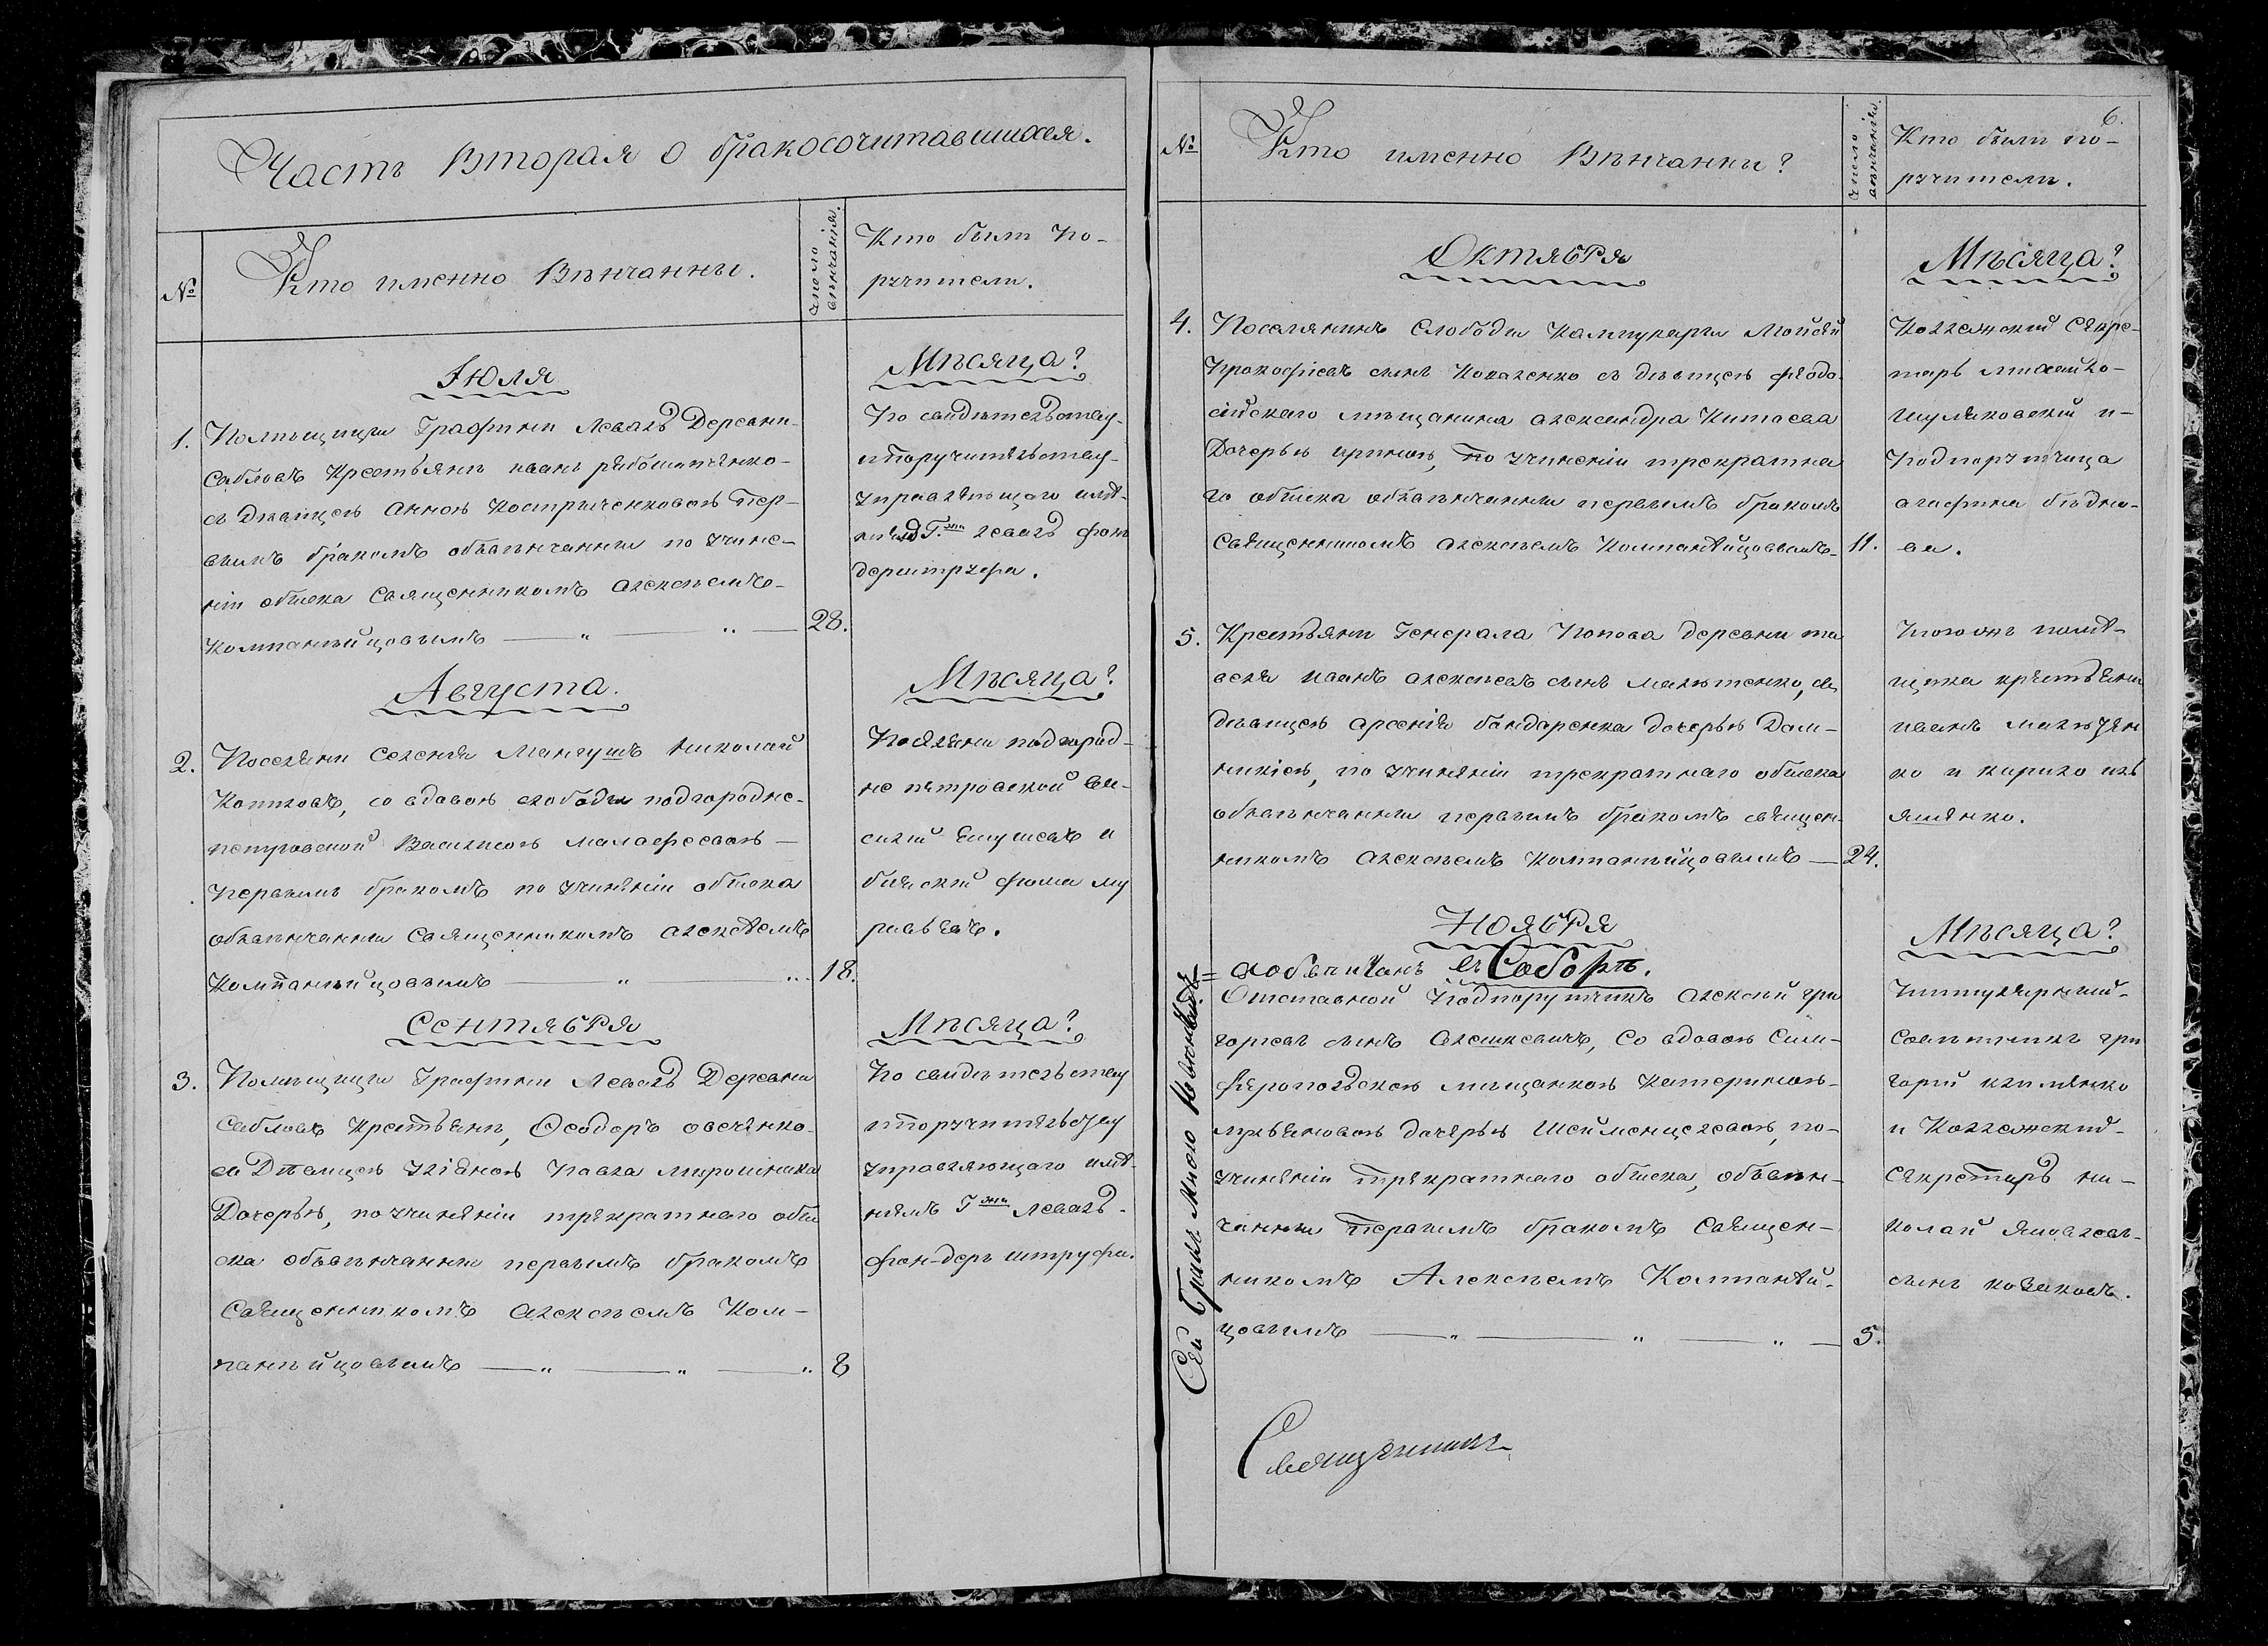 Часть Вторая о бракосочитавшихся.
№
Кто именно Вѣнчанны.
число
венчанія.
Кто были по-
ручители.
Іюля
Мѣсяца?
1. Помѣщицы Графини Левалъ Деревни
Сабловъ Крестьянъ иванъ
съ Дѣвицею Анною Костриченковою пер-
вымъ бракомъ обвѣнчанны по учине-
ніи обыска Священникомъ Алексѣемъ
Компанѣйцовымъ — „ — „ — 28.
По свидѣтельству
и поручительству
управляющаго имѣ-
Г.жи Левалъ фон
дерштруфа.
Августа.
Мѣсяца?
2. Поселяни селенія Мангушъ николай
Котковъ, со вдовою слободы подгородне-
петровской Василисою малафеевою —
первымъ бракомъ по учиненіи обыска
обвѣнчанны Священникомъ алексѣемъ
Компанѣйцовымъ — „ „ 18.
Поселяни подгород-
не пѣтровской
и
фома му
равьевъ.
Сентября
Мѣсяца?
3. Помѣщицы Графини Левалъ Деревни
Сабловъ Крестьянъ, Ѳеодоръ овечѣнко
съ Дѣвицею Уліяною Павла мирошника
Дочерью, по учинѣніи трѣкратнаго обы
ска обвѣнчанны первымъ бракомъ
Свѣщенникомъ алексѣемъ Ком-
панѣйцовымъ — „ — „ — „ 8
По свидѣтельству
и поручитѣльству
управляющаго имѣ-
ніямъ Г.жи Левалъ
фон-деръ штруфы.
6.
№
Кто именно Вѣнчанны?
число
вѣнчанія.
Кто были по-
ручители.
Октября
Мѣсяца?
4. Поселянинъ Слободы Мойсей
Прокофіевъ сынъ Коваленко съ дѣвицею феодо-
сійскаго мѣщанина александра Китаева
Дочерью ириною, по учинѣніи трекратна
го обыска обвѣнчанны первымъ бракомъ
Свѣщенникомъ алексѣемъ Компанѣйцовымъ 11.
Коллежскій Сѣкре-
тарь михайло
и
Подпоручица
агафия бѣдно-
ва.
5. Крестьяни Генерала Попова деревни та
вель иванъ алексѣевъ сынъ малютенко, съ
дѣвицею арсенія бандаренка дочерью Дом-
никією, по учинѣніи трекратнаго обыска
обвѣнчанны первымъ бракомъ свѣщен-
никомъ Алексѣемъ Компанѣйцовымъ — 24.
помѣ-
щика крѣстьяни
иванъ малютен
ко и кирило
Ноября
Мѣсяца?
въ Соборѣ.
Отставной Подпоручикъ Алексѣй гри
горіевъ сынъ Алешкевичъ, со вдовою Сим-
фѣропольскою мѣщанкою Катериною
дочерью по-
учинѣніи трѣкратнаго обыска, обвѣн-
чанны первымъ бракомъ Свѣщен-
никомъ Алексѣемъ Компанѣй-
цовымъ — „ — „ — „ — 5.
Титулярный
Совѣтникъ гри
горій климѣнко
и Коллежскій
Секретарь ни-
колай
сынъ козаковъ.
Сей Бракъ Мною
Священникъ